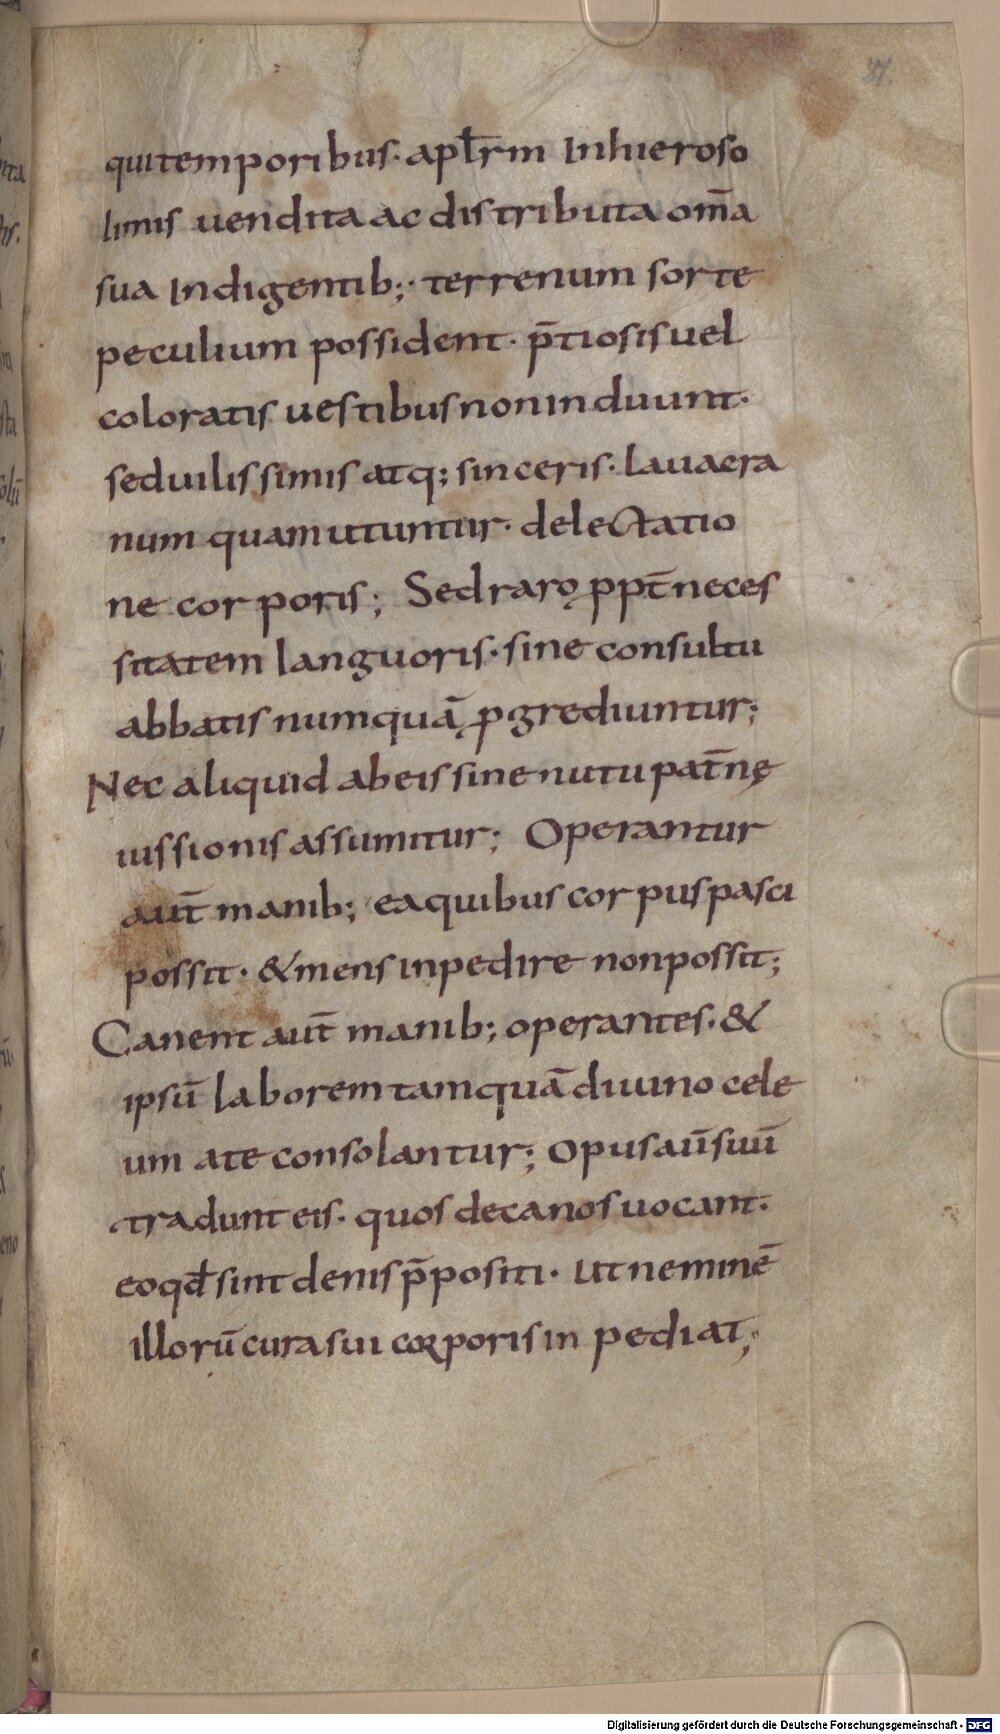 37.
qui temporibus· apl̅rm Inhieroso
limis uendita ac distributa om̅a
sua Indigentib;· terrenum sorte
peculium possident· p̅tiosis uel
coloratis uestibus non induunt·
sed uilissimis atq; sinceris· Lauacra
num quam utuntur· delectatio
ne corporis; Sed raro ꝓpt̅ neces
sitatem languoris· sine consultu
abbatis numquā ꝓgrediuntur;
Nec aliquid ab eis sine nutu pat̅nę
iussionis assumitur; Operantur
aut̅ manib; ea quibus corpus pasci
possit· & mens inpedire non possit;
Canent aut̅ manib; operantes· &
ipsū laborem tamquā diuino cele
um ate consolantur; Opus aū suū
tradunt eis· quos decanos uocant·
eo qđ sint denis p̅positi· ut neminē
illorū cura sui corporis in pediat;
Digitalisierung gefördert durch die Deutsche Forschungsgemeinschaft - DFG